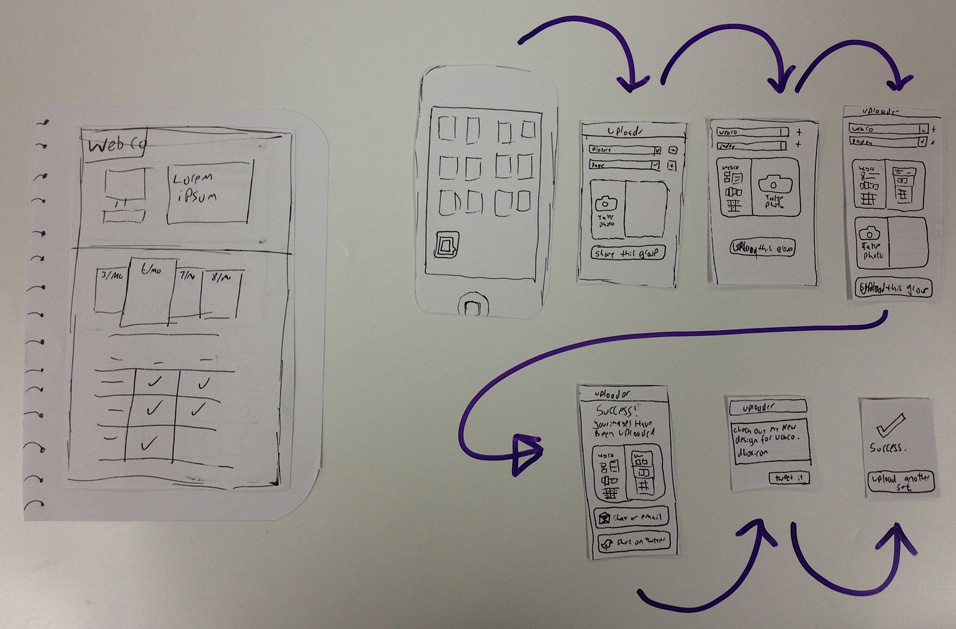 WebCo
Lorem
ipsum
5/mo
6/mo
7/mo
8/mo
uploader
Project
Page
Take
Photo
Share this group
webco
Take
Photo
Upload this group
uploader
webco
webco
Take
Photo
Upload this group
uploader
Success!
Your images have
Been uploaded
webco
Share on email
Share on Twitter
uploader
check out my new
design for webco.
tweet it
Success.
upload another
set